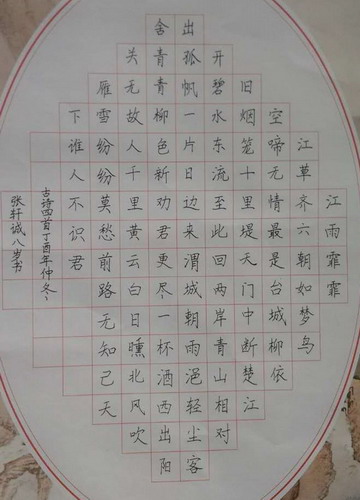 江雨霏霏
江草齐六朝如梦鸟
空啼无情最是台城柳依
旧烟笼十里堤天门中断楚江
开碧水东流至此回两岸青山相对
出孤帆一片日边来渭城朝雨浥轻尘客
舍青青柳色新劝君更尽一杯酒西出阳
关无故人千里黄云白日曛北风吹
雁雪纷纷莫愁前路无知己天
下谁人不识君
古诗四首丁酉年仲冬、
张轩诚八岁书